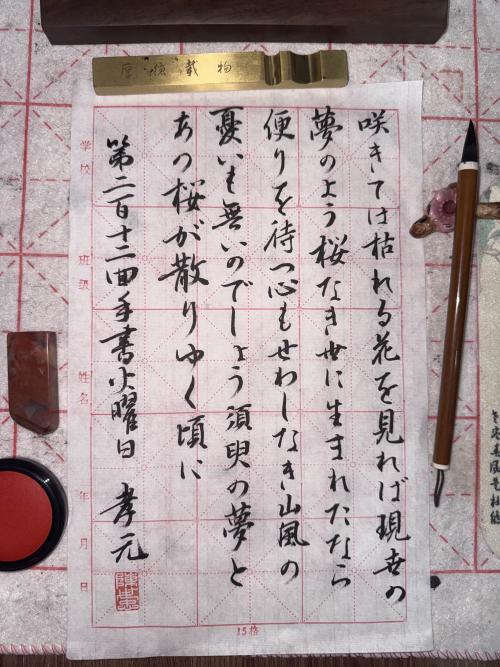 咲きては枯れる花を見れば現世の
夢のよう桜なき世に生まれたなら
便りを待つ心もせわしなき山風の
憂いも無いのでしょう須臾の夢と
あの桜が散りゆく頃に
第二百十二曲手書火曜日 孝元
厚德載物
学校
班级
姓名
年
月
日
15格